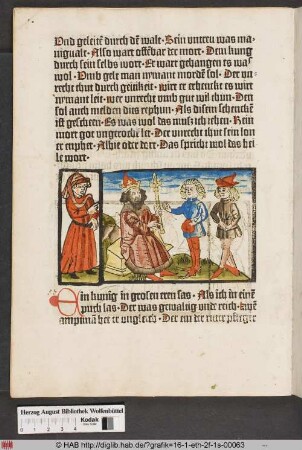 Und geleitet durch den walt. Sein untreu was ma-
nigualt. Also wart offenbar der mort. Dem kunig
durch sein selbs wort. Er wart gehangen es was
wol. Umb gelt man nymant morden sol. Der un-
recht thut durch geitikeit. wirt er
nymant leit. wer unrecht umb gut wil thun. Den
sol auch melden dits rephun. Als disem schencken
ist gescheen. Es was wol das mus ich iehen. Kein
mort gar ungerochen leit. Der unrecht thut sein lon
er enphet. Alhie oder dort. Das spricht wol des bi-
le wort.
Ein kunig in grosen eren sas. Als ich in einem
puch las. Der was gewaltig und reich.
Der ein der ritter pfleger
Herzog August Bibliothek Wolfenbüttel
Kodak
© HAB http://diglib.hab.de/?grafik=16-1-eth-2f-1s-00063